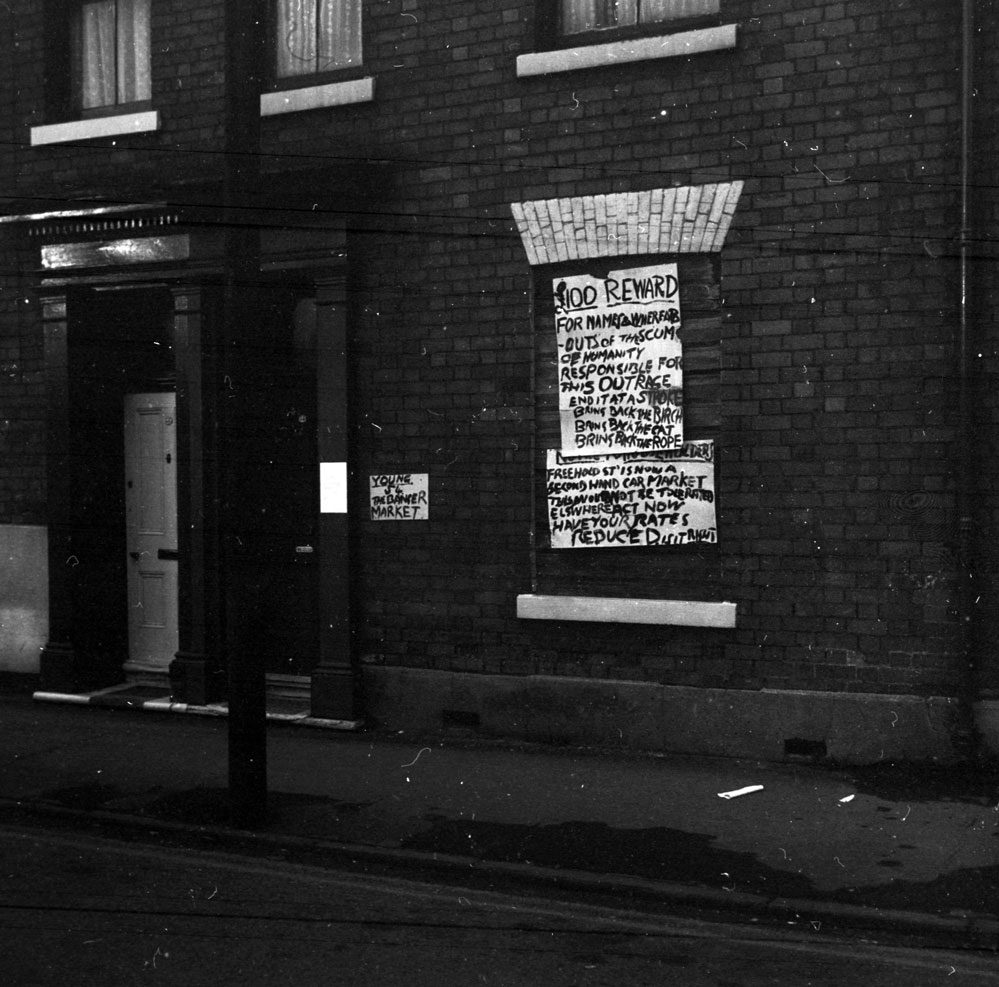 £100 REWARD
FOR NAMES & WHEREAB
-OUTS OF THE SCUM
OF HUMANITY
RESPONSIBLE FOR
THIS OUTRAGE
END IT AT A STROKE
BRING BACK THE BIRCH
BRING BACK THE CAT
BRING BACK THE ROPE
FREEHOLD ST IS NOW A
SECOND HAND CAR MARKET
NOT BE TOLERATED
ELSWHERE ACT NOW
HAVE YOUR RATES
REDUCED
YOUNG
THE BANGER
MARKET